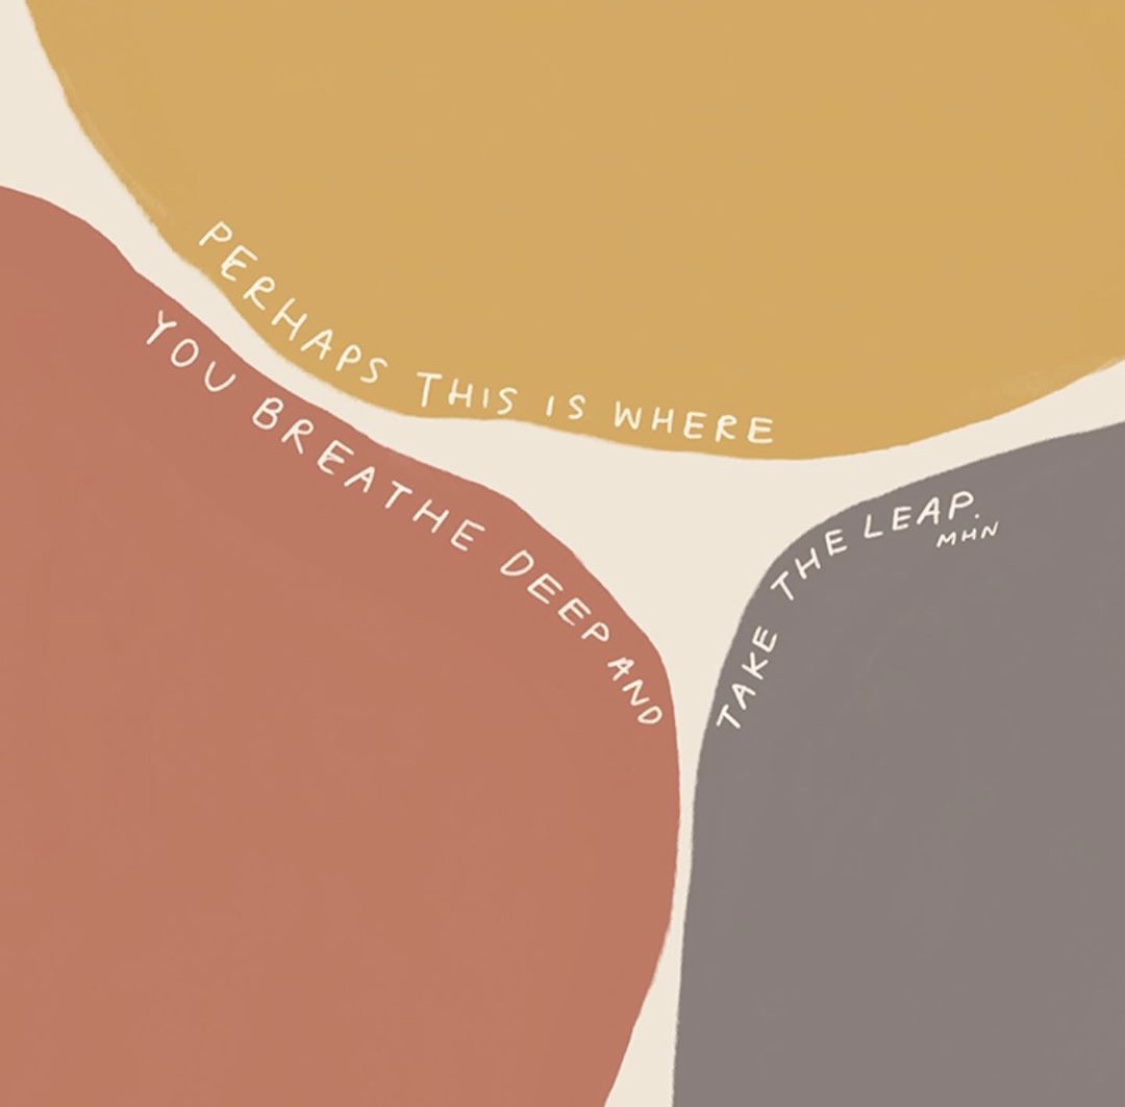 PERHAPS THIS IS WHERE
YOU BREATHE DEEP AND
TAKE THE LEAP.
MHN